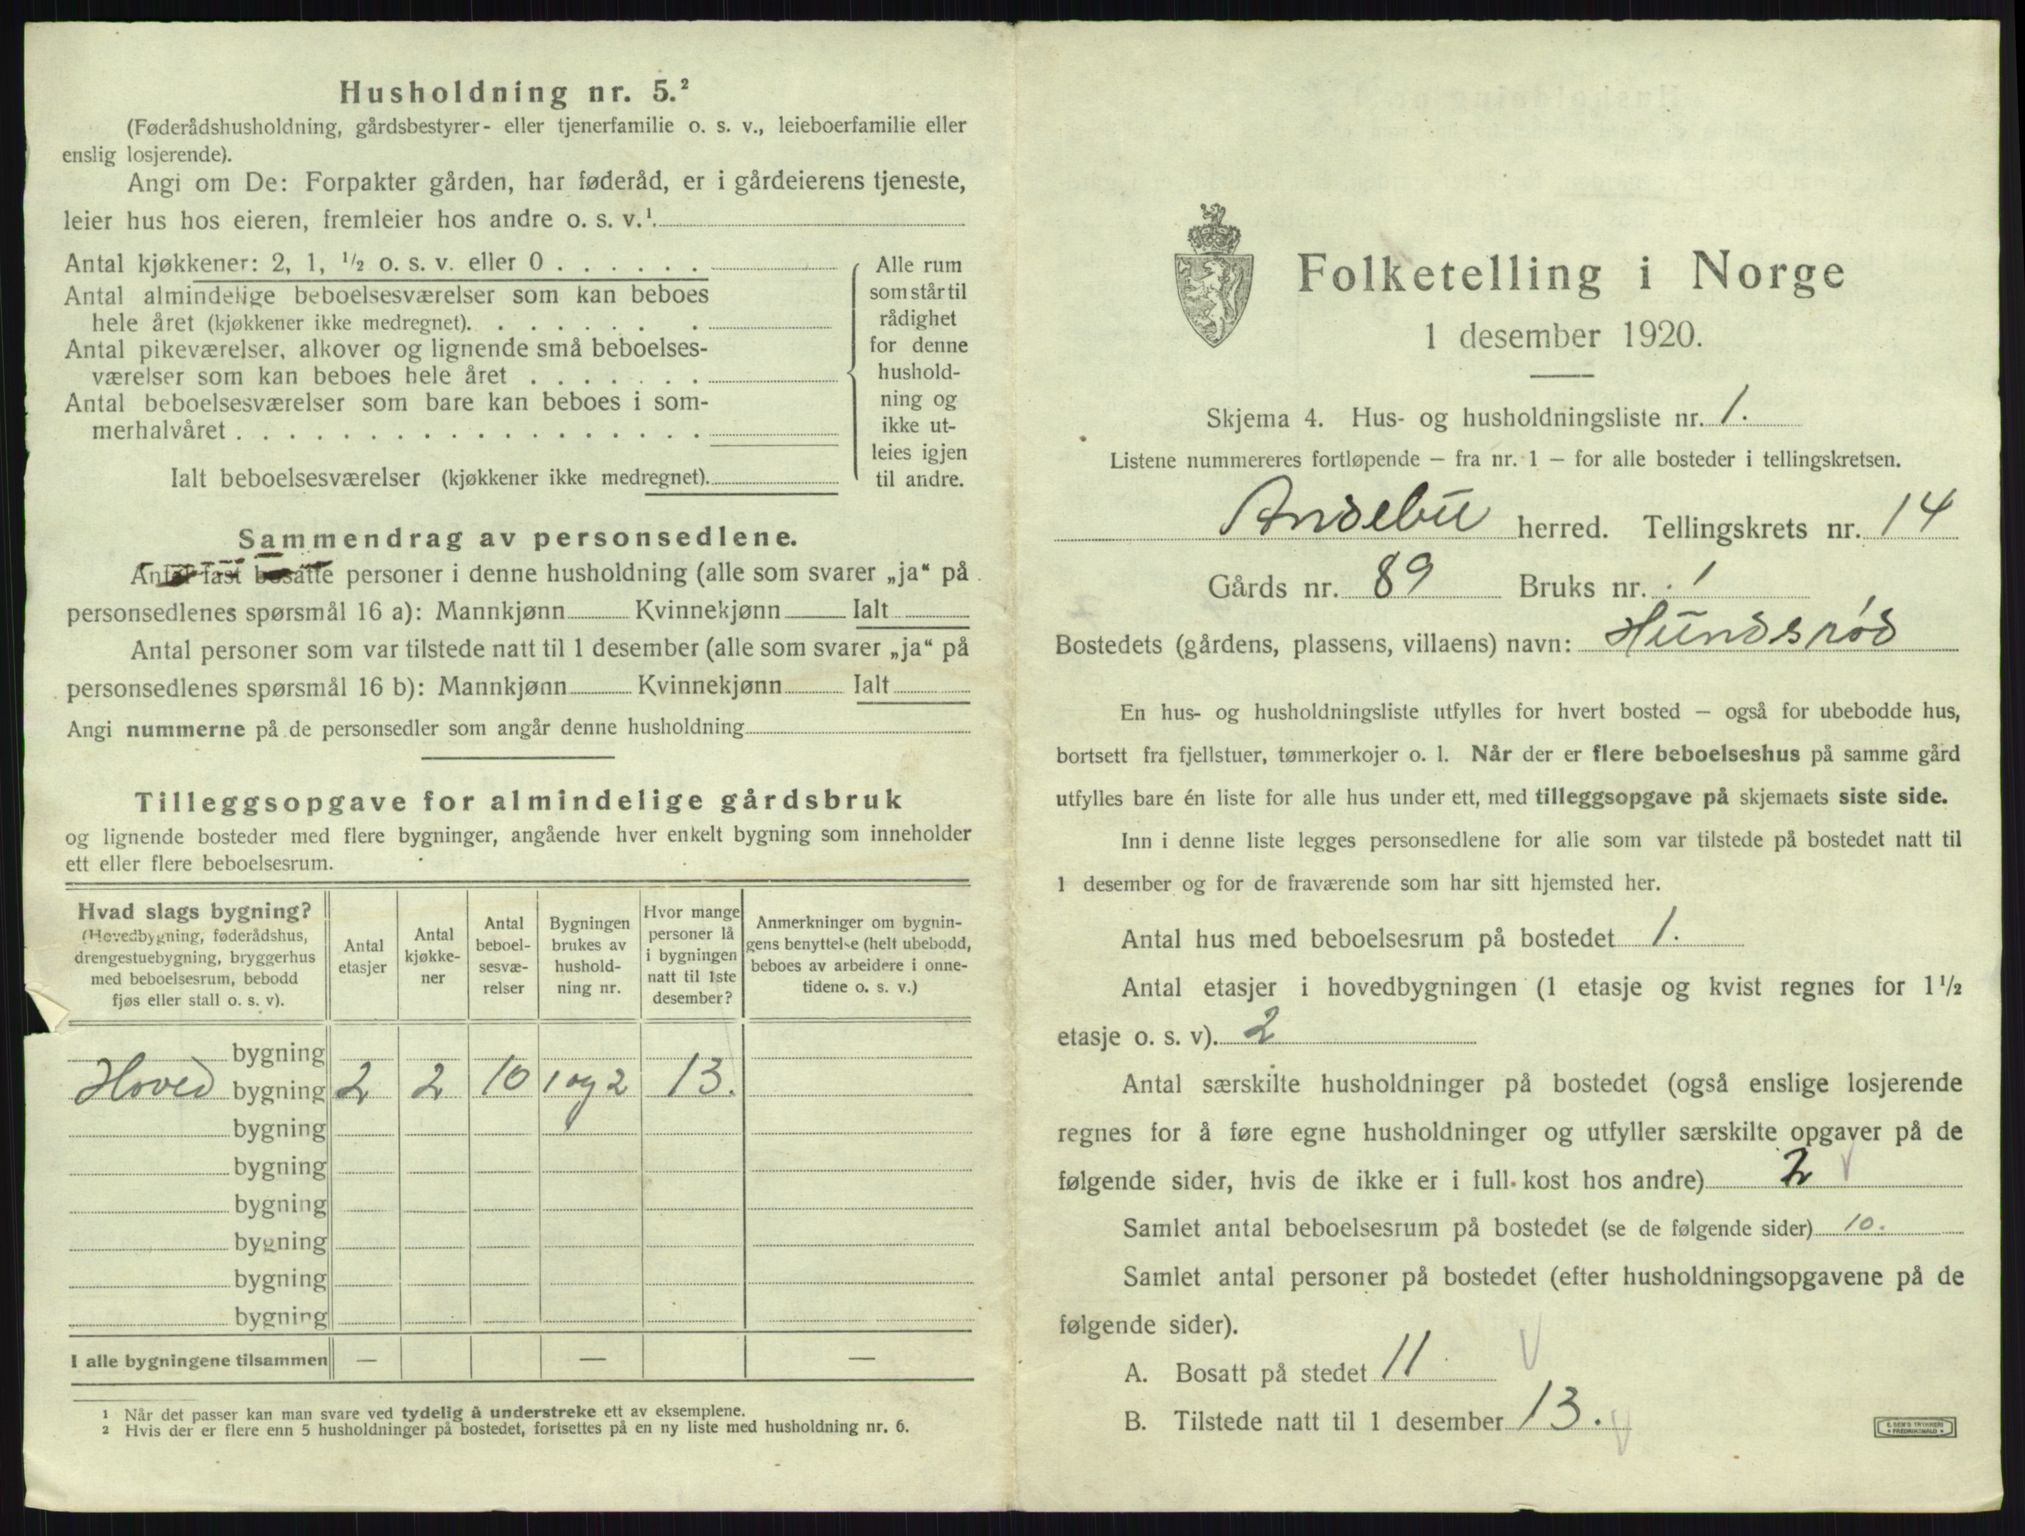 Husholdning nr. 5.²
(Føderådshusholdning, gårdsbestyrer- eller tjenerfamilie o. s. v., leieboerfamilie eller
enslig losjerende).
Angi om De: Forpakter gården, har føderåd, er i gårdeierens tjeneste,
leier hus hos eieren, fremleier hos andre o. s. v.¹
Antal kjøkkener: 2, 1, ½ o. s. v. eller 0 . . . . . .
Antal almindelige beboelsesværelser som kan beboes
hele året (kjøkkener ikke medregnet). . . . . . . . .
Antal pikeværelser, alkover og lignende små beboelses-
værelser som kan beboes hele året . . . . . . .
Antal beboelsesværelser som bare kan beboes i som-
merhalvåret . . . . . . . . . . . . . . . . . .
Ialt beboelsesværelser (kjøkkener ikke medregnet).
Alle rum
som står til
rådighet
for denne
hushold-
ning og
ikke ut-
leies igjen
til andre.
Sammendrag av personsedlene.
Antal fast bosatte personer i denne husholdning (alle som svarer „ja“ på
personsedlenes spørsmål 16 a): Mannkjønn Kvinnekjønn Ialt
Antal personer som var tilstede natt til 1 desember (alle som svarer „ja“ på
personsedlenes spørsmål 16 b): Mannkjønn Kvinnekjønn Ialt
Angi nummerne på de personsedler som angår denne husholdning
Tilleggsopgave for almindelige gårdsbruk
og lignende bosteder med flere bygninger, angående hver enkelt bygning som inneholder
ett eller flere beboelsesrum.
Hvad slags bygning?
(Hovedbygning, føderådshus,
drengestuebygning, bryggerhus
med beboelsesrum, bebodd
fjøs eller stall o. s. v).
Antal
etasjer
Antal
kjøkke-
ner
Antal
beboel-
sesvæ-
relser
Bygningen
brukes av
hushold-
ning nr.
Hvor mange
personer lå
i bygningen
natt til 1ste
desember?
Anmerkninger om bygnin-
gens benyttelse (helt ubebodd,
beboes av arbeidere i onne-
tidene o. s. v.)
bygning
Hoved bygning 2 2 10 1 og 2 13.
bygning
bygning
bygning
bygning
bygning
bygning
I alle bygningene tilsammen — — —
¹ Når det passer kan man svare ved tydelig å understreke ett av eksemplene.
² Hvis der er flere enn 5 husholdninger på bostedet, fortsettes på en ny liste med husholdning nr. 6.
Folketelling i Norge
1 desember 1920.
Skjema 4. Hus- og husholdningsliste nr. 1.
Listene nummereres fortløpende – fra nr. 1 – for alle bosteder i tellingskretsen.
Andebu herred. Tellingskrets nr. 14
Gårds nr. 89 Bruks nr. 1
Bostedets (gårdens, plassens, villaens) navn: Hundsrød
En hus- og husholdningsliste utfylles for hvert bosted – også for ubebodde hus,
bortsett fra fjellstuer, tømmerkojer o. l. Når der er flere beboelseshus på samme gård
utfylles bare én liste for alle hus under ett, med tilleggsopgave på skjemaets siste side.
Inn i denne liste legges personsedlene for alle som var tilstede på bostedet natt til
1 desember og for de fraværende som har sitt hjemsted her.
Antal hus med beboelsesrum på bostedet 1.
Antal etasjer i hovedbygningen (1 etasje og kvist regnes for 1½
etasje o. s. v). 2
Antal særskilte husholdninger på bostedet (også enslige losjerende
regnes for å føre egne husholdninger og utfyller særskilte opgaver på de
følgende sider, hvis de ikke er i full kost hos andre) 2
Samlet antal beboelsesrum på bostedet (se de følgende sider) 10.
Samlet antal personer på bostedet (efter husholdningsopgavene på de
følgende sider).
A. Bosatt på stedet 11
B. Tilstede natt til 1 desember 13.